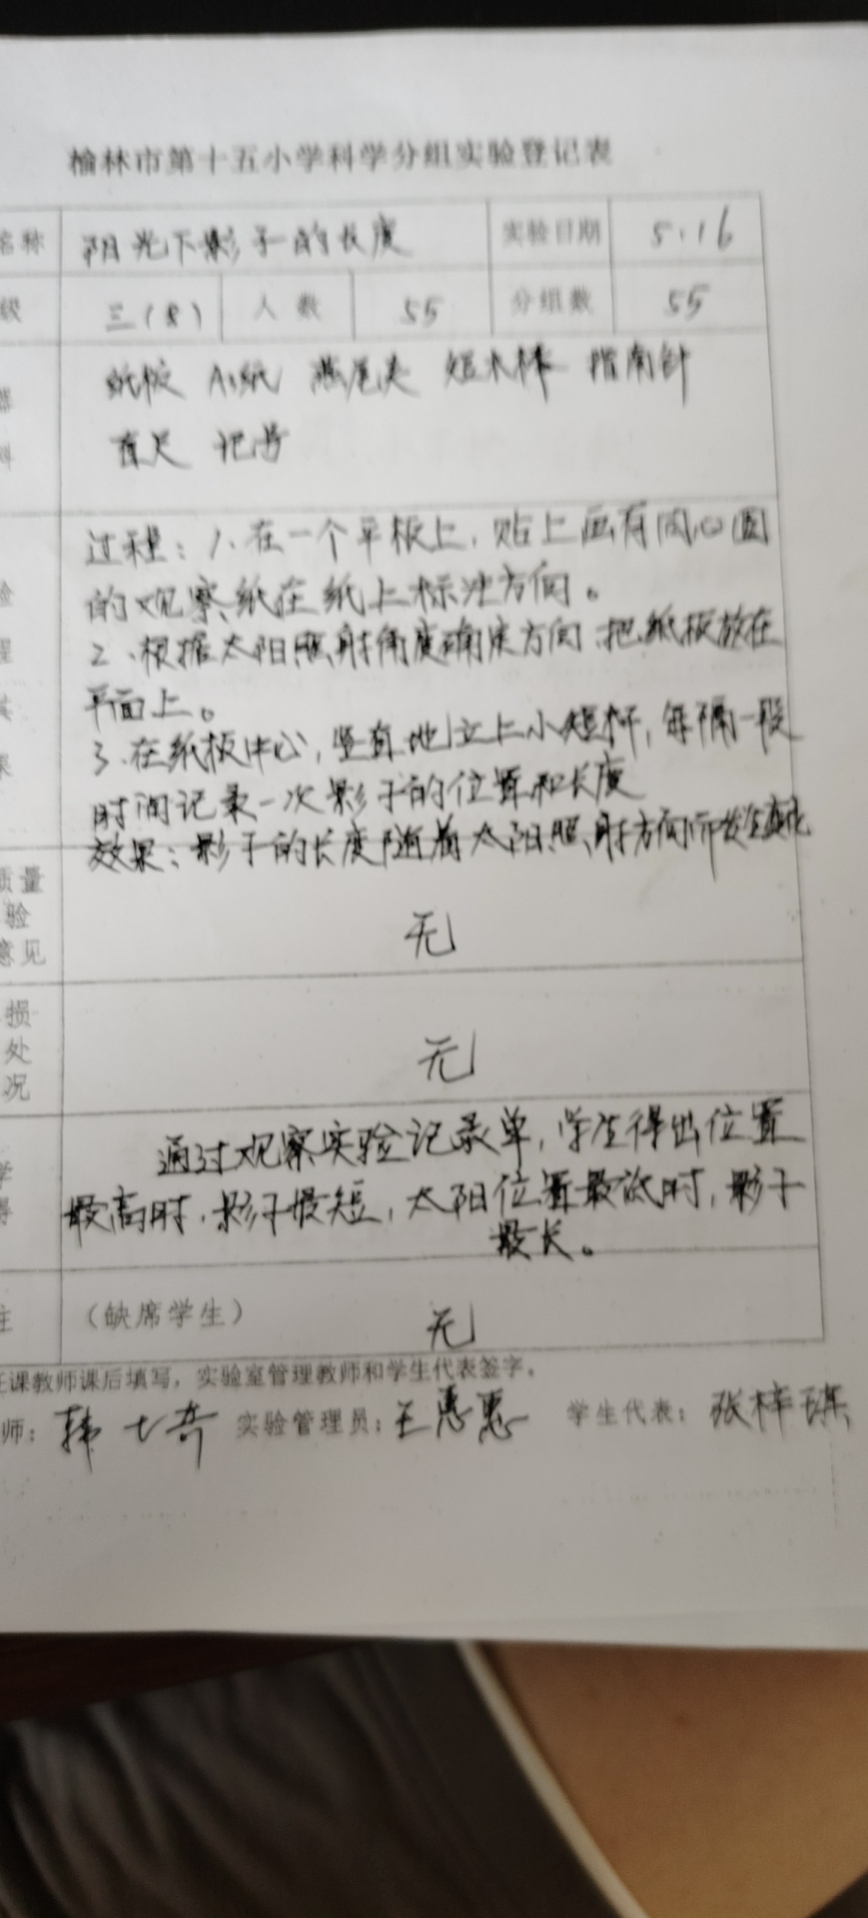 榆林市第十五小学科学分组实验登记表
名称 阳光下影子的长度 实验日期 5.16
级 三(8) 人数 55 分组数 55
器 纸板 A4纸 燕尾夹 短木棒 指南针
料 直尺 记号
过程：1.在一个平板上，贴上画有同心圆
验 的观察纸在纸上标注方向。
程 2、根据太阳照射角度确定方向 把纸板放在
平面上。
3.在纸板中心，竖直地立上小短杆，每隔一段
果 时间记录一次影子的位置和长度
效果：影子的长度随着太阳照射方向而发生变化
质量
验 无
意见
损
处 无
况
通过观察实验记录单，学生得出位置
学
得 最高时，影子最短，太阳位置最低时，影子
最长。
注 （缺席学生） 无
任课教师课后填写，实验室管理教师和学生代表签字。
师： 韩 奇 实验管理员：王惠惠 学生代表：张梓